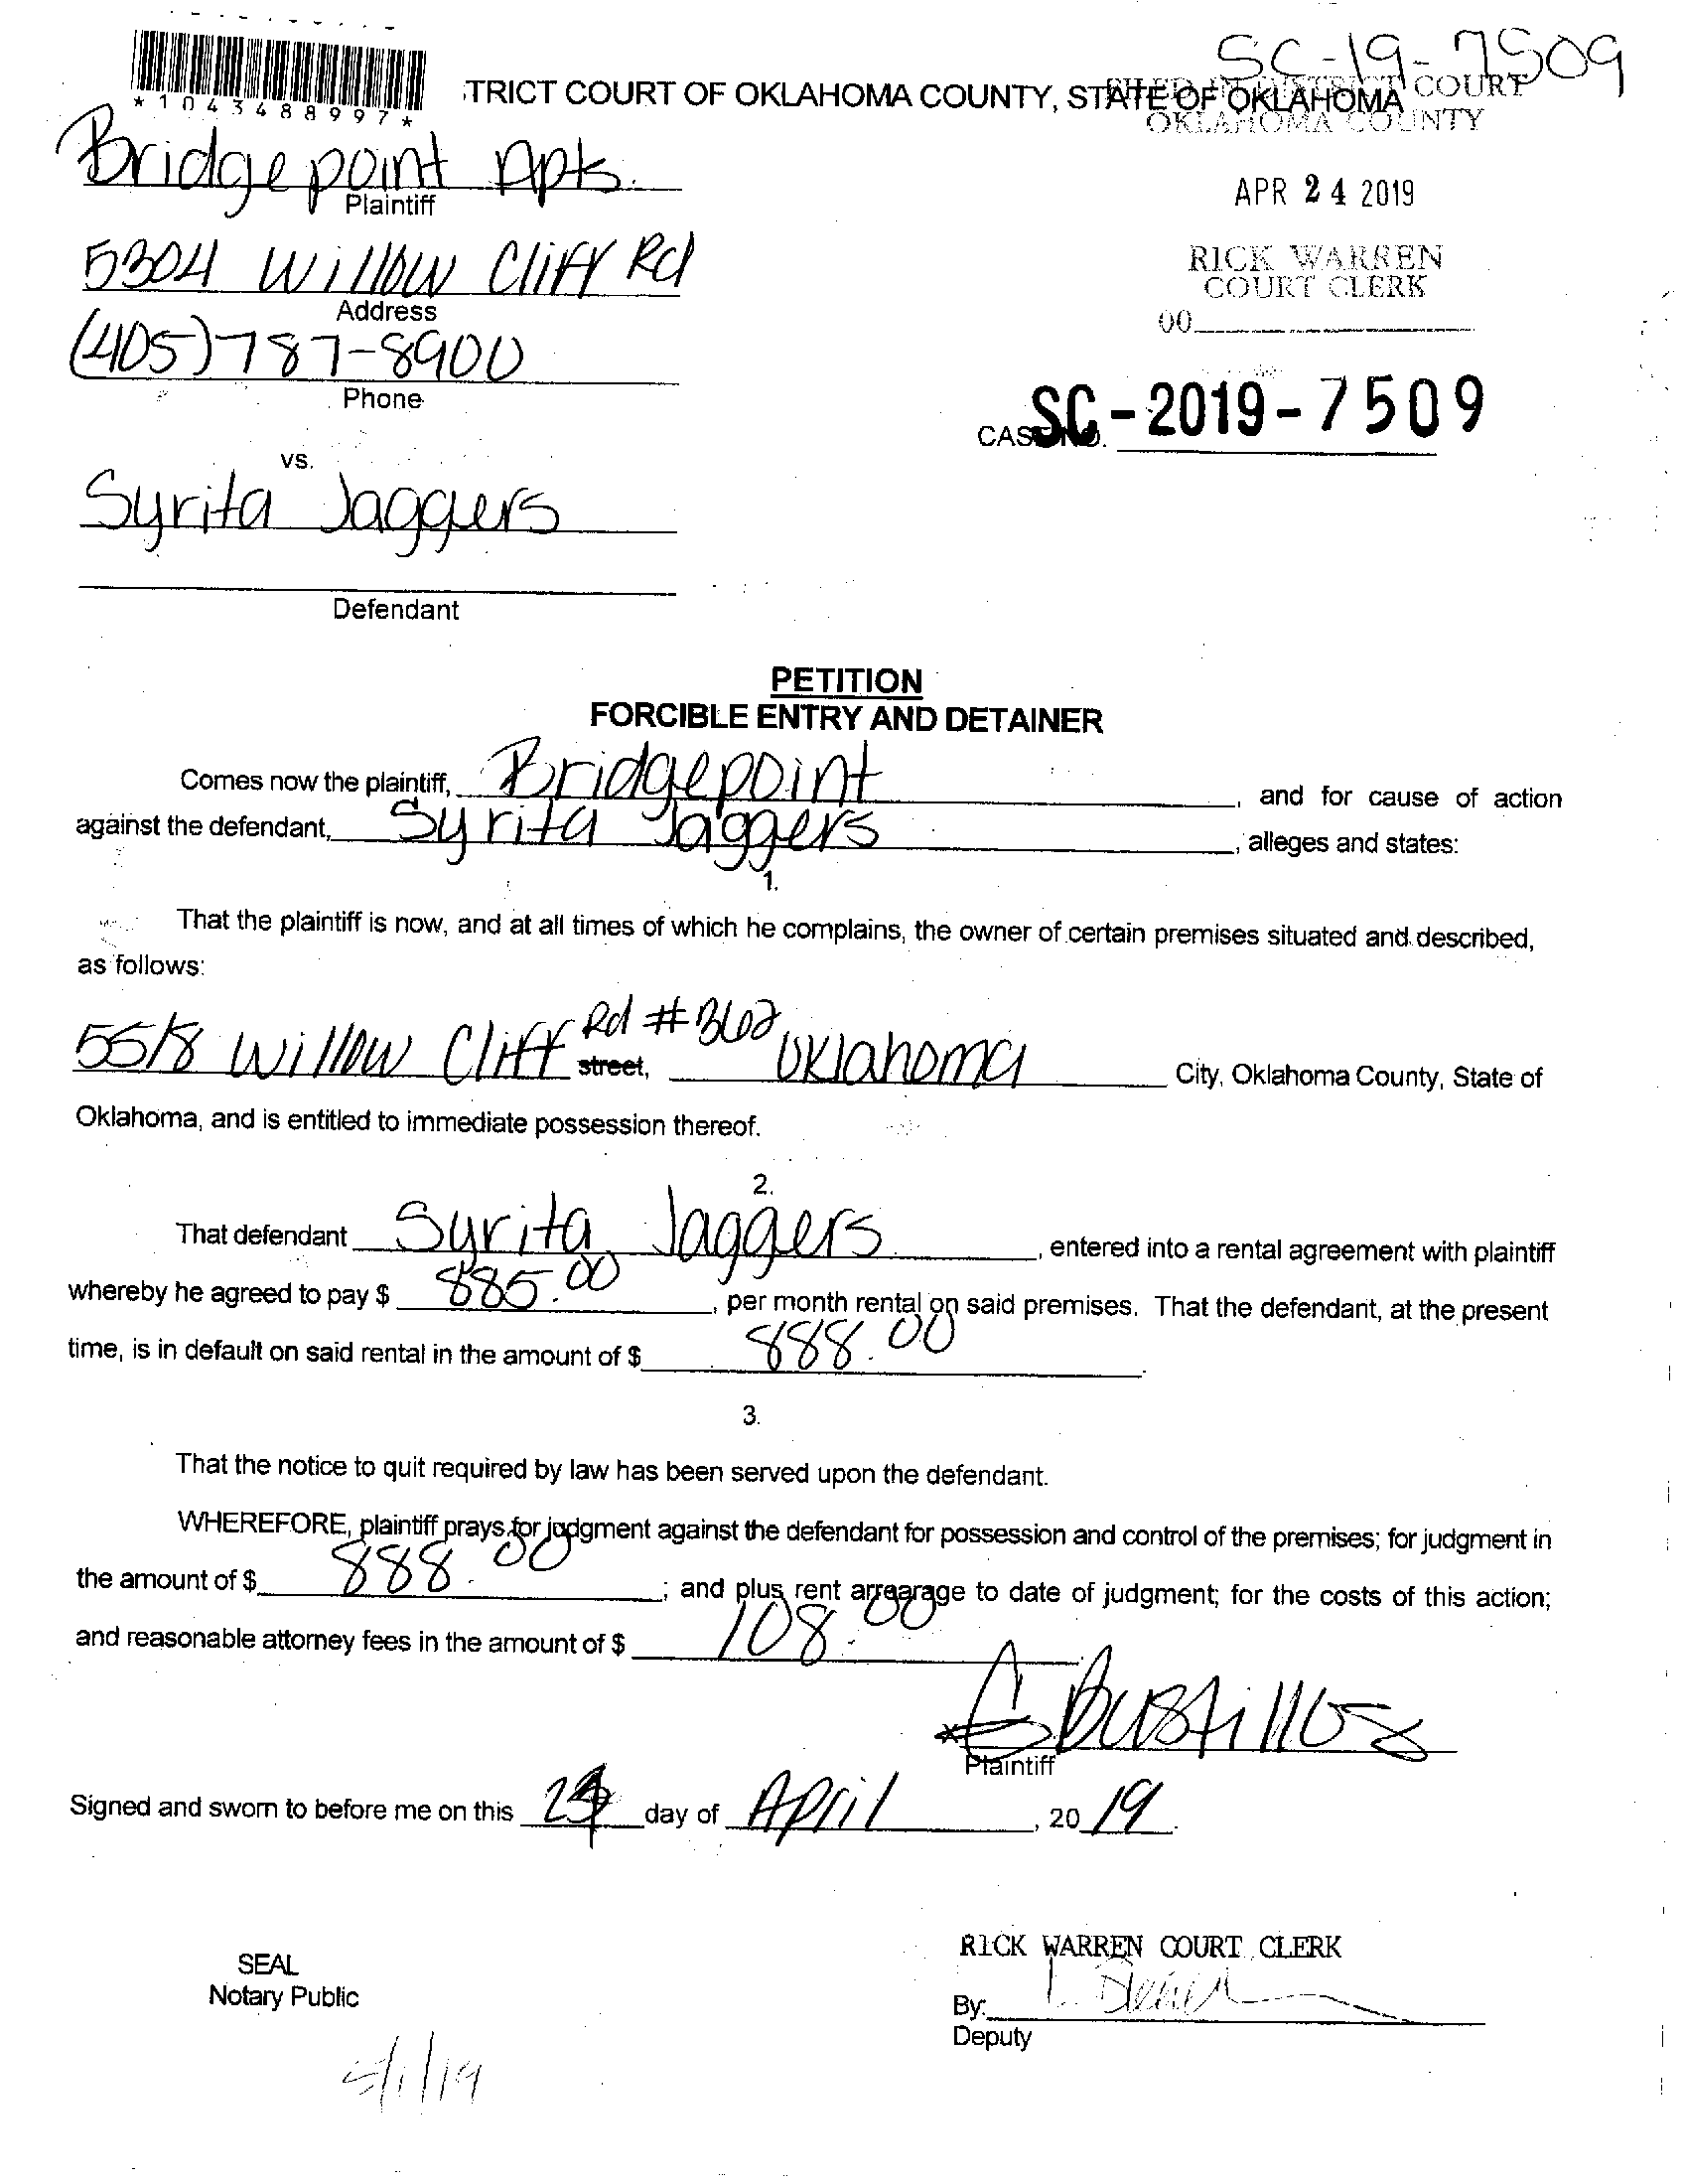 SC-19-7509
*1043488997*
TRICT COURT OF OKLAHOMA COUNTY, STATE OF OKLAHOMA
FILED IN DISTRICT COURT
OKLAHOMA COUNTY
Bridgepoint Apts.
Plaintiff
APR 24 2019
5304 Willow Cliff Rd
Address
RICK WARREN
COURT CLERK
(405)787-8900
Phone
00
CASE NO. SC-2019-7509
vs.
Syrita Jaggers
Defendant
PETITION
FORCIBLE ENTRY AND DETAINER
Comes now the plaintiff, Bridgepoint, and for cause of action
against the defendant, Syrita Jaggers, alleges and states:
1.
That the plaintiff is now, and at all times of which he complains, the owner of certain premises situated and described,
as follows:
5518 Willow Cliff Rd #362 street, Oklahoma City, Oklahoma County, State of
Oklahoma, and is entitled to immediate possession thereof.
2.
That defendant Syrita Jaggers, entered into a rental agreement with plaintiff
whereby he agreed to pay $ 885.00, per month rental on said premises. That the defendant, at the present
time, is in default on said rental in the amount of $ 888.00.
3.
That the notice to quit required by law has been served upon the defendant.
WHEREFORE, plaintiff prays for judgment against the defendant for possession and control of the premises; for judgment in
the amount of $ 888.00; and plus rent arrearage to date of judgment; for the costs of this action;
and reasonable attorney fees in the amount of $ 108.00.
Bustillos
Plaintiff
Signed and sworn to before me on this 24 day of April, 2019.
RICK WARREN COURT CLERK
SEAL
Notary Public
By:
Deputy
5/1/19